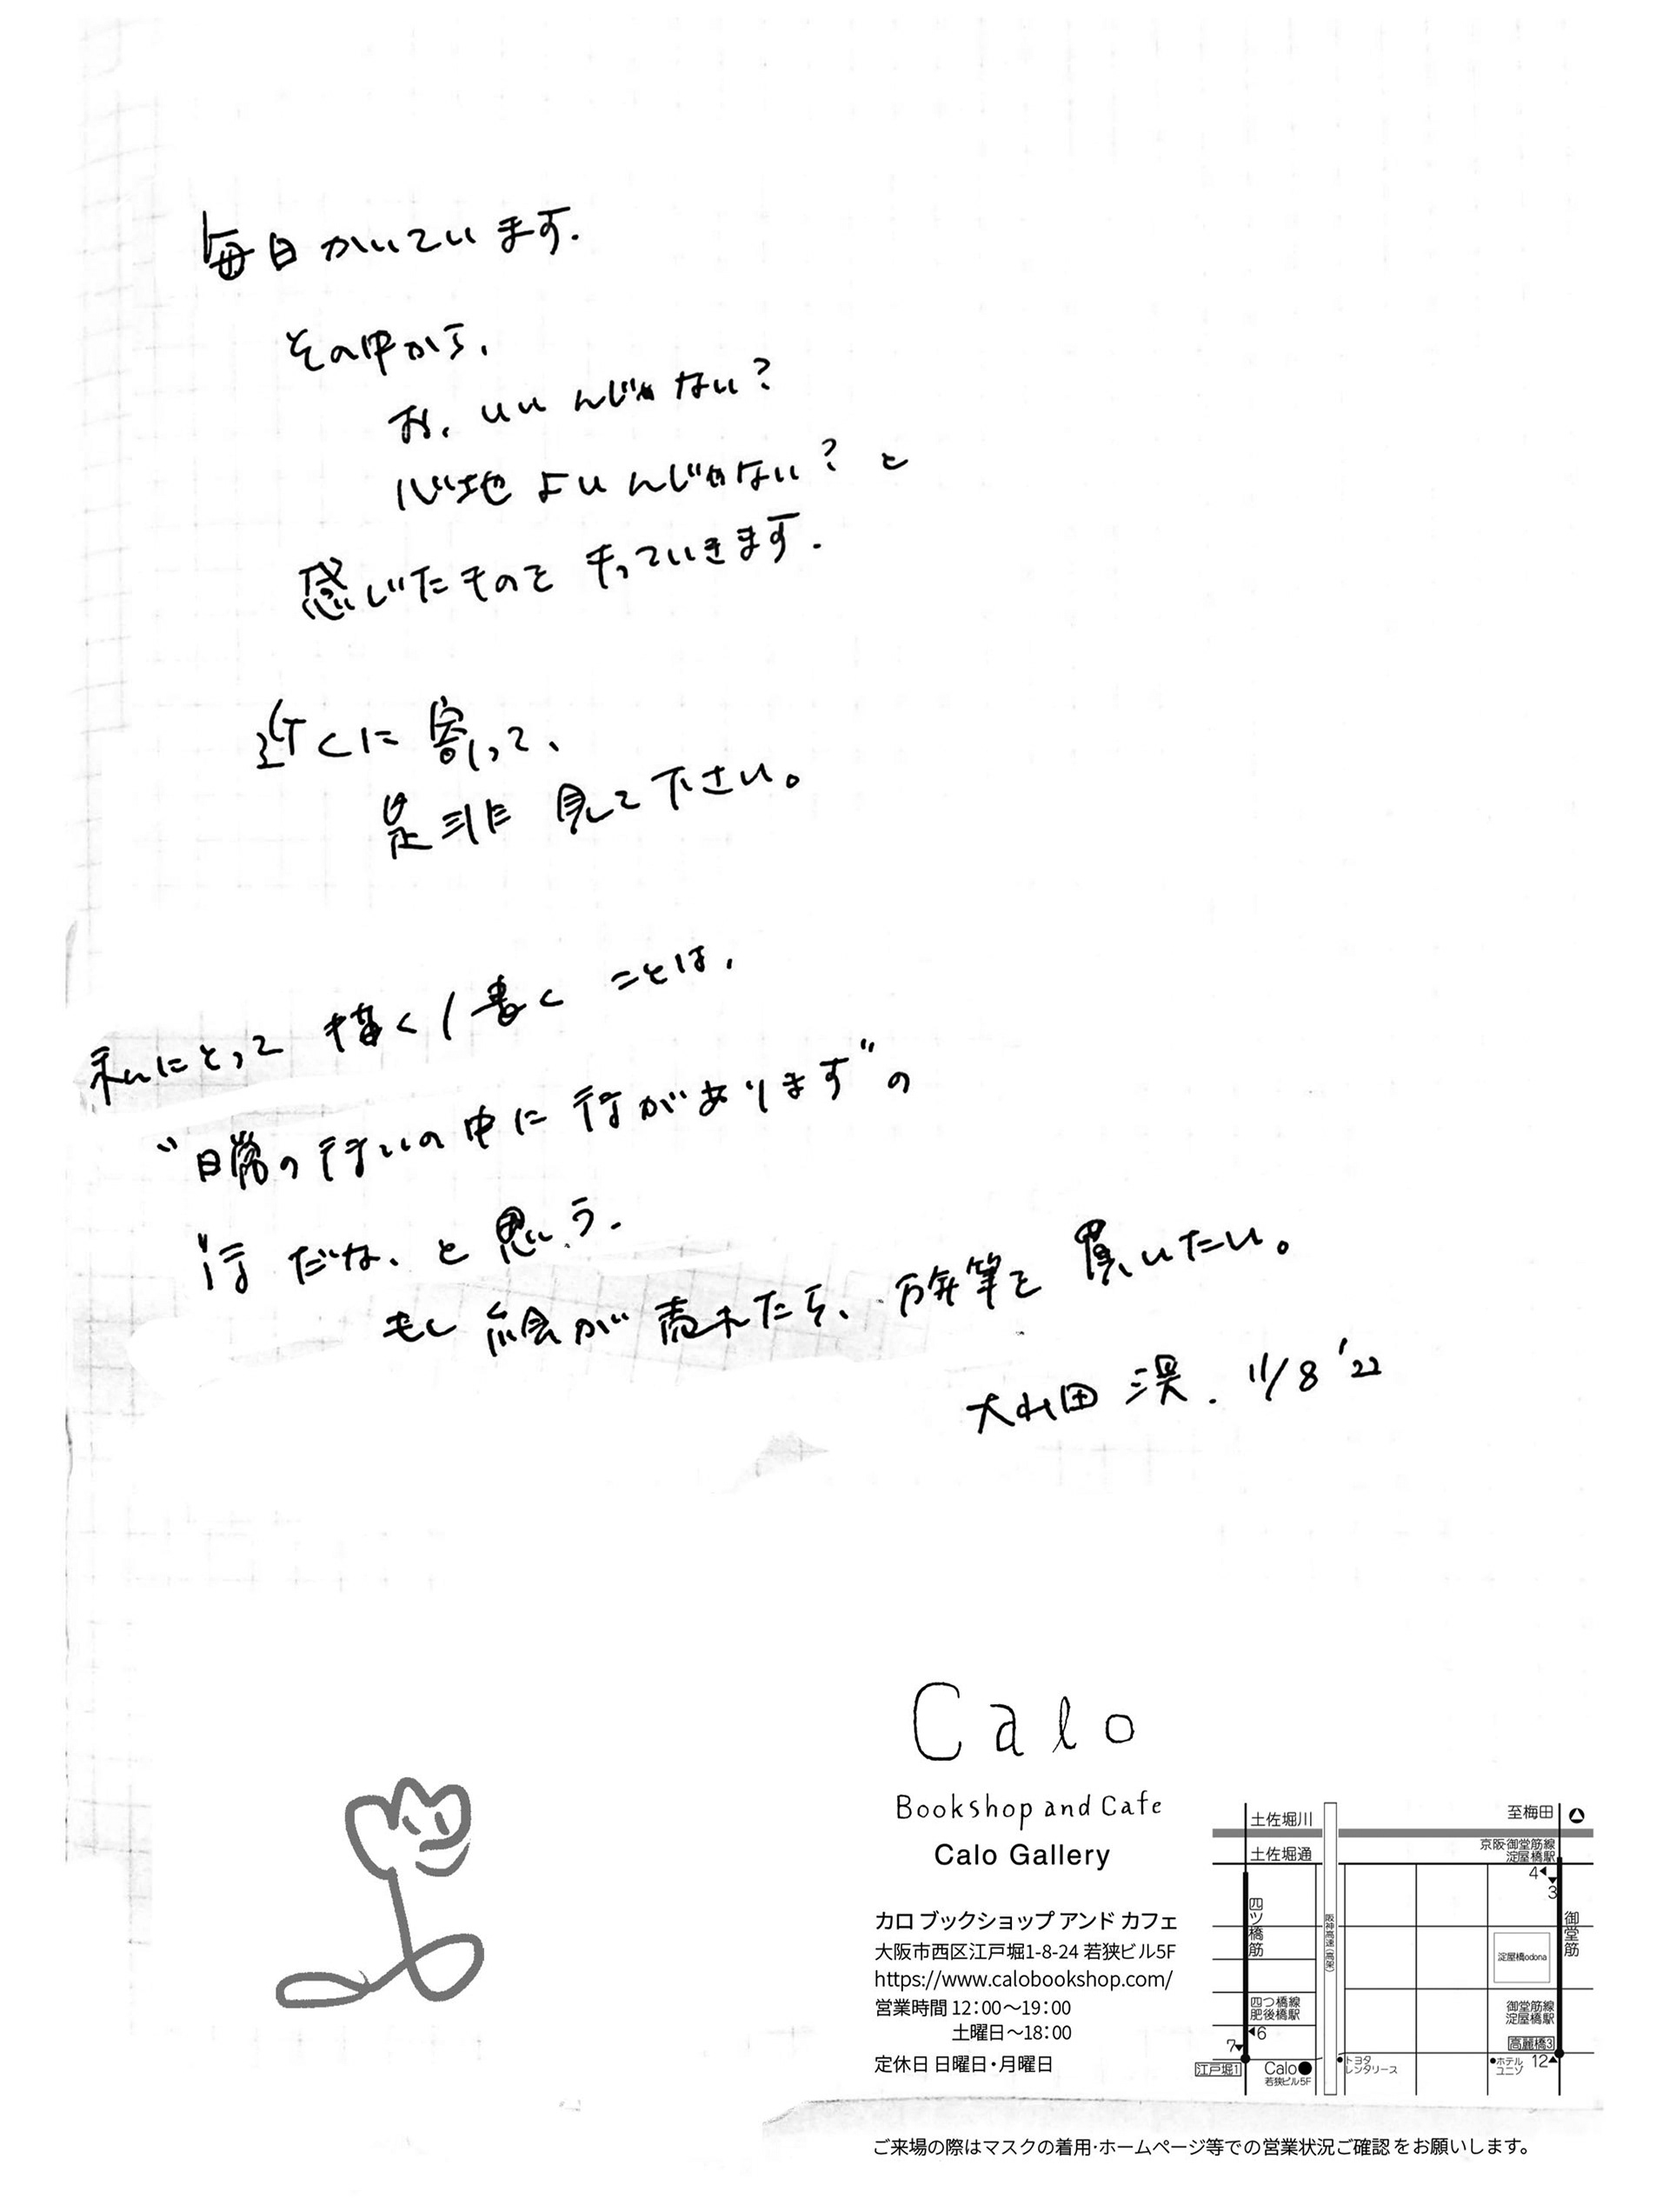 毎日かいています.
その中から、
お、いいんじゃない?
心地よいんじゃない? と
感じたものをもっていきます.
近くに寄って、
是非見て下さい。
私にとって描く/書くことは、
"日常の行いの中に行があります"の
行だな、と思う.
もし絵が売れたら、万年筆を買いたい。
大田 滉. 11/8 '22
Calo
Bookshop and Cafe
Calo Gallery
カロ ブックショップ アンド カフェ
大阪市西区江戸堀1-8-24 若狭ビル5F
https://www.calobookshop.com/
営業時間 12:00〜19:00
土曜日〜18:00
定休日 日曜日・月曜日
土佐堀川
至梅田
土佐堀通
京阪・御堂筋線
淀屋橋駅
4
3
四ツ橋筋
阪神高速(高架)
御堂筋
淀屋橋odona
四つ橋線
肥後橋駅
御堂筋線
淀屋橋駅
6
7
高麗橋3
江戸堀1
Calo
若狭ビル5F
トヨタ
レンタリース
ホテル
ユニゾ
12
ご来場の際はマスクの着用・ホームページ等での営業状況ご確認をお願いします。